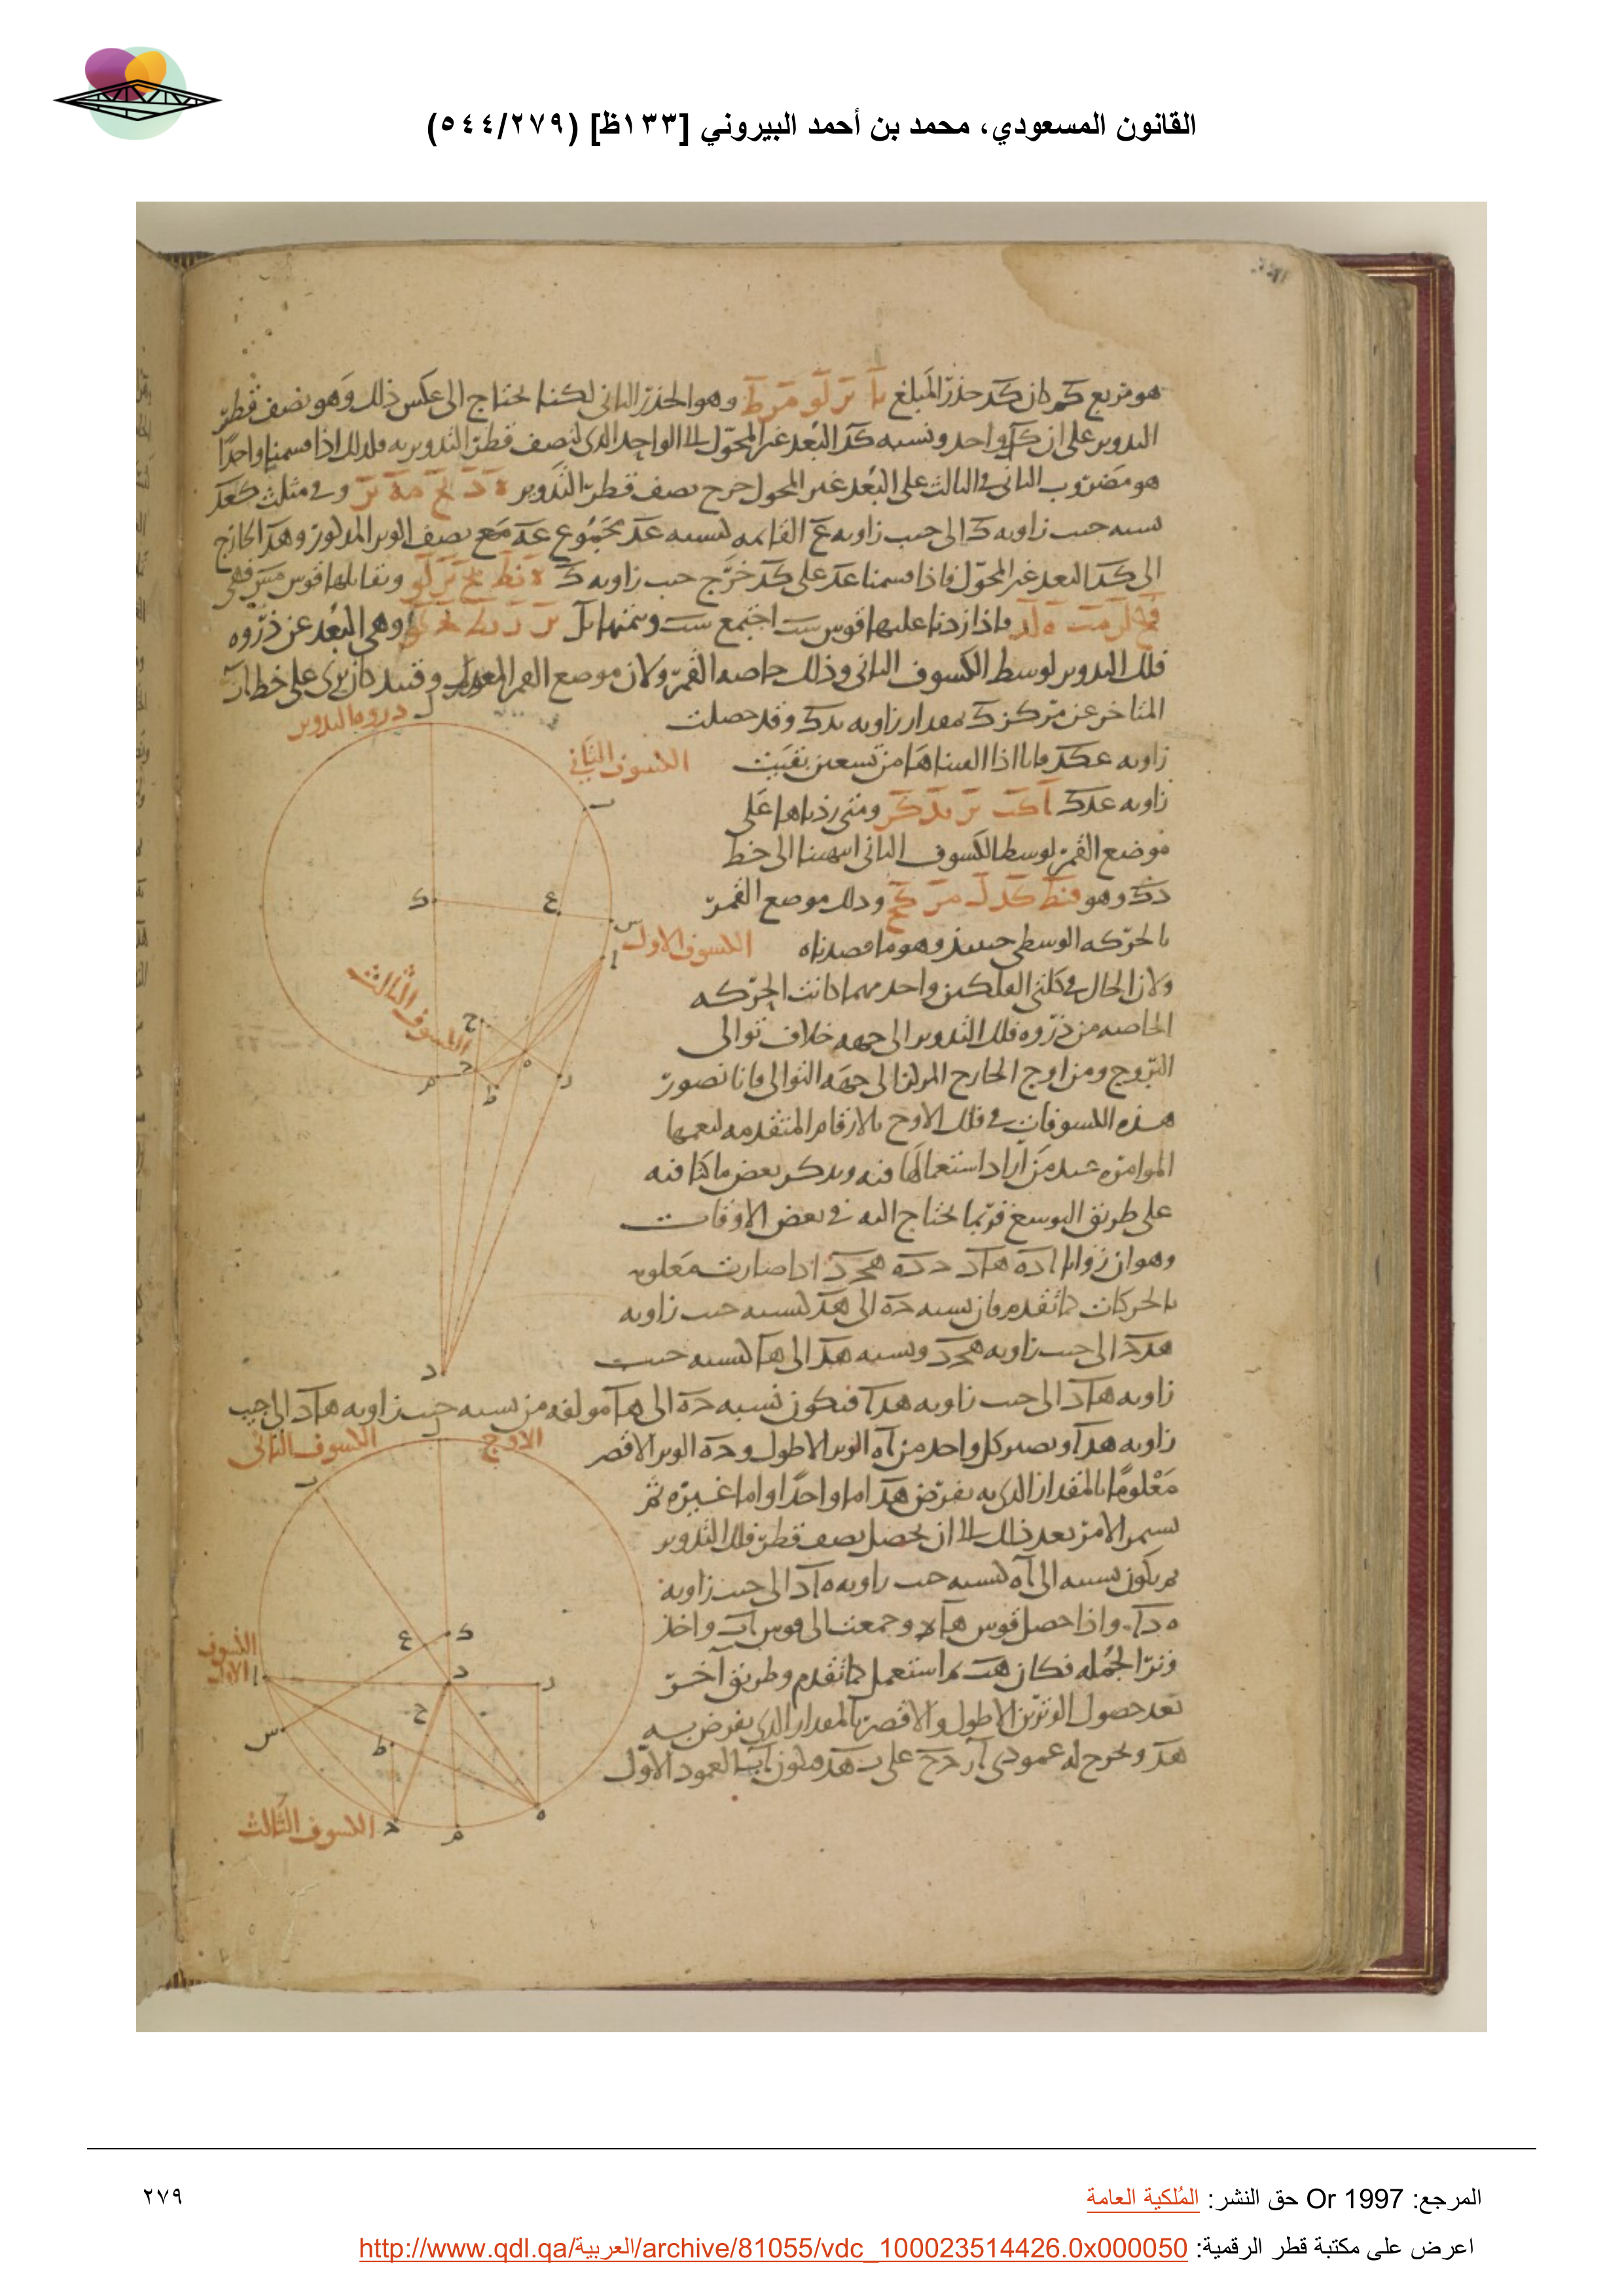 القانون المسعودي، محمد بن أحمد البيروني [١٣٣ظ] (٥٤٤/٢٧٩)
هو مربع كم كان كد جذر المبلغ وهو الجذر الثانى لكنا نحتاج الى عكس ذلك وهو نصف قطر
التدوير على ان كد واحد ونسبه كد البعد غير المحول الى الواحد الذى لنصف قطر التدوير به فلذلك اذا قسمنا واحدًا
هو مضروب الثانى فى الثالث على البعد غير المحول خرج نصف قطر التدوير وفى مثلث كعد
نسبه جيب زاويه د الى جيب زاويه ع القائمه كنسبه عد مجموع عه مع نصف الوتر المذكور وهذا الخارج
الى كد البعد غير المحول فاذا قسمنا عد على كد خرج جيب زاويه ك ويقابلها قوس مس فهى
فاذا زدنا عليها قوس ست اجتمع ست وتمتها بل وهى البعد عن ذروه
فلك التدوير لوسط الكسوف الثانى وذلك خاصه القمر ولان موضع القمر المعدل وقتئذ كان يرى على خط دب
المتاخر عن مركز ك بمقدار زاويه بدك وقد حصلت
زاويه عكد فانا اذا القيناها من تسعين بقيت
زاويه عدك ومتى زدناها على
موضع القمر لوسط الكسوف الثانى انتهينا الى خط
دك وهو وذلك موضع القمر
بالحركه الوسطى حينئذ وهو ما قصدناه
ولان الحال فى كلتى الفلكين واحد مهما كانت الحركه
الخاصه من ذروه فلك التدوير الى جهه خلاف توالى
البروج ومن اوج الخارج المركز الى جهه التوالى فانا نصور
هذه الكسوفات فى فلك الاوج بالارقام المتقدمه ليعمها
الموامره عند من اراد استعمالها فيه ويذكر بعض ما كنا فيه
على طريق التوسع فربما يحتاج اليه فى بعض الاوقات
وهو ان زوايا اده هاد حده هحد اذا صارت معلومه
بالحركات كما تقدم فان نسبه حه الى هد كنسبه جيب زاويه
هدح الى جيب زاويه هحد ونسبه هد الى ها كنسبه جيب
زاويه هاد الى جيب زاويه هدا فتكون نسبه حه الى ها مولفه من نسبه جيب زاويه هاد الى جيب
زاويه هدا ويصير كل واحد من اه الوتر الاطول وحه الوتر الاقصر
معلومًا بالمقدار الذى به يفرض هد اما واحدًا واما غيره ثم
يستمر الامر بعد ذلك الى ان يحصل نصف قطر فلك التدوير
ثم يكون نسبته الى اه كنسبه جيب زاويه هاد الى جيب زاويه
هدا واذا حصل قوس ها وجمعت الى قوس اب واخذ
وتر الجمله فكان هب ثم استعمل كما تقدم وطريق آخر
بعد حصول الوترين الاطول والاقصر بالمقدار الذى يفرض به
هد ويخرج له عمودى ار دح على هد فيكون العمود الاول
ذروه التدوير
الكسوف الثانى
الكسوف الاول
الكسوف الثالث
الاوج
الكسوف الثانى
الكسوف الاول
الكسوف الثالث
المرجع: Or 1997 حق النشر: المُلكية العامة
٢٧٩
اعرض على مكتبة قطر الرقمية: http://www.qdl.qa/العربية/archive/81055/vdc_100023514426.0x000050